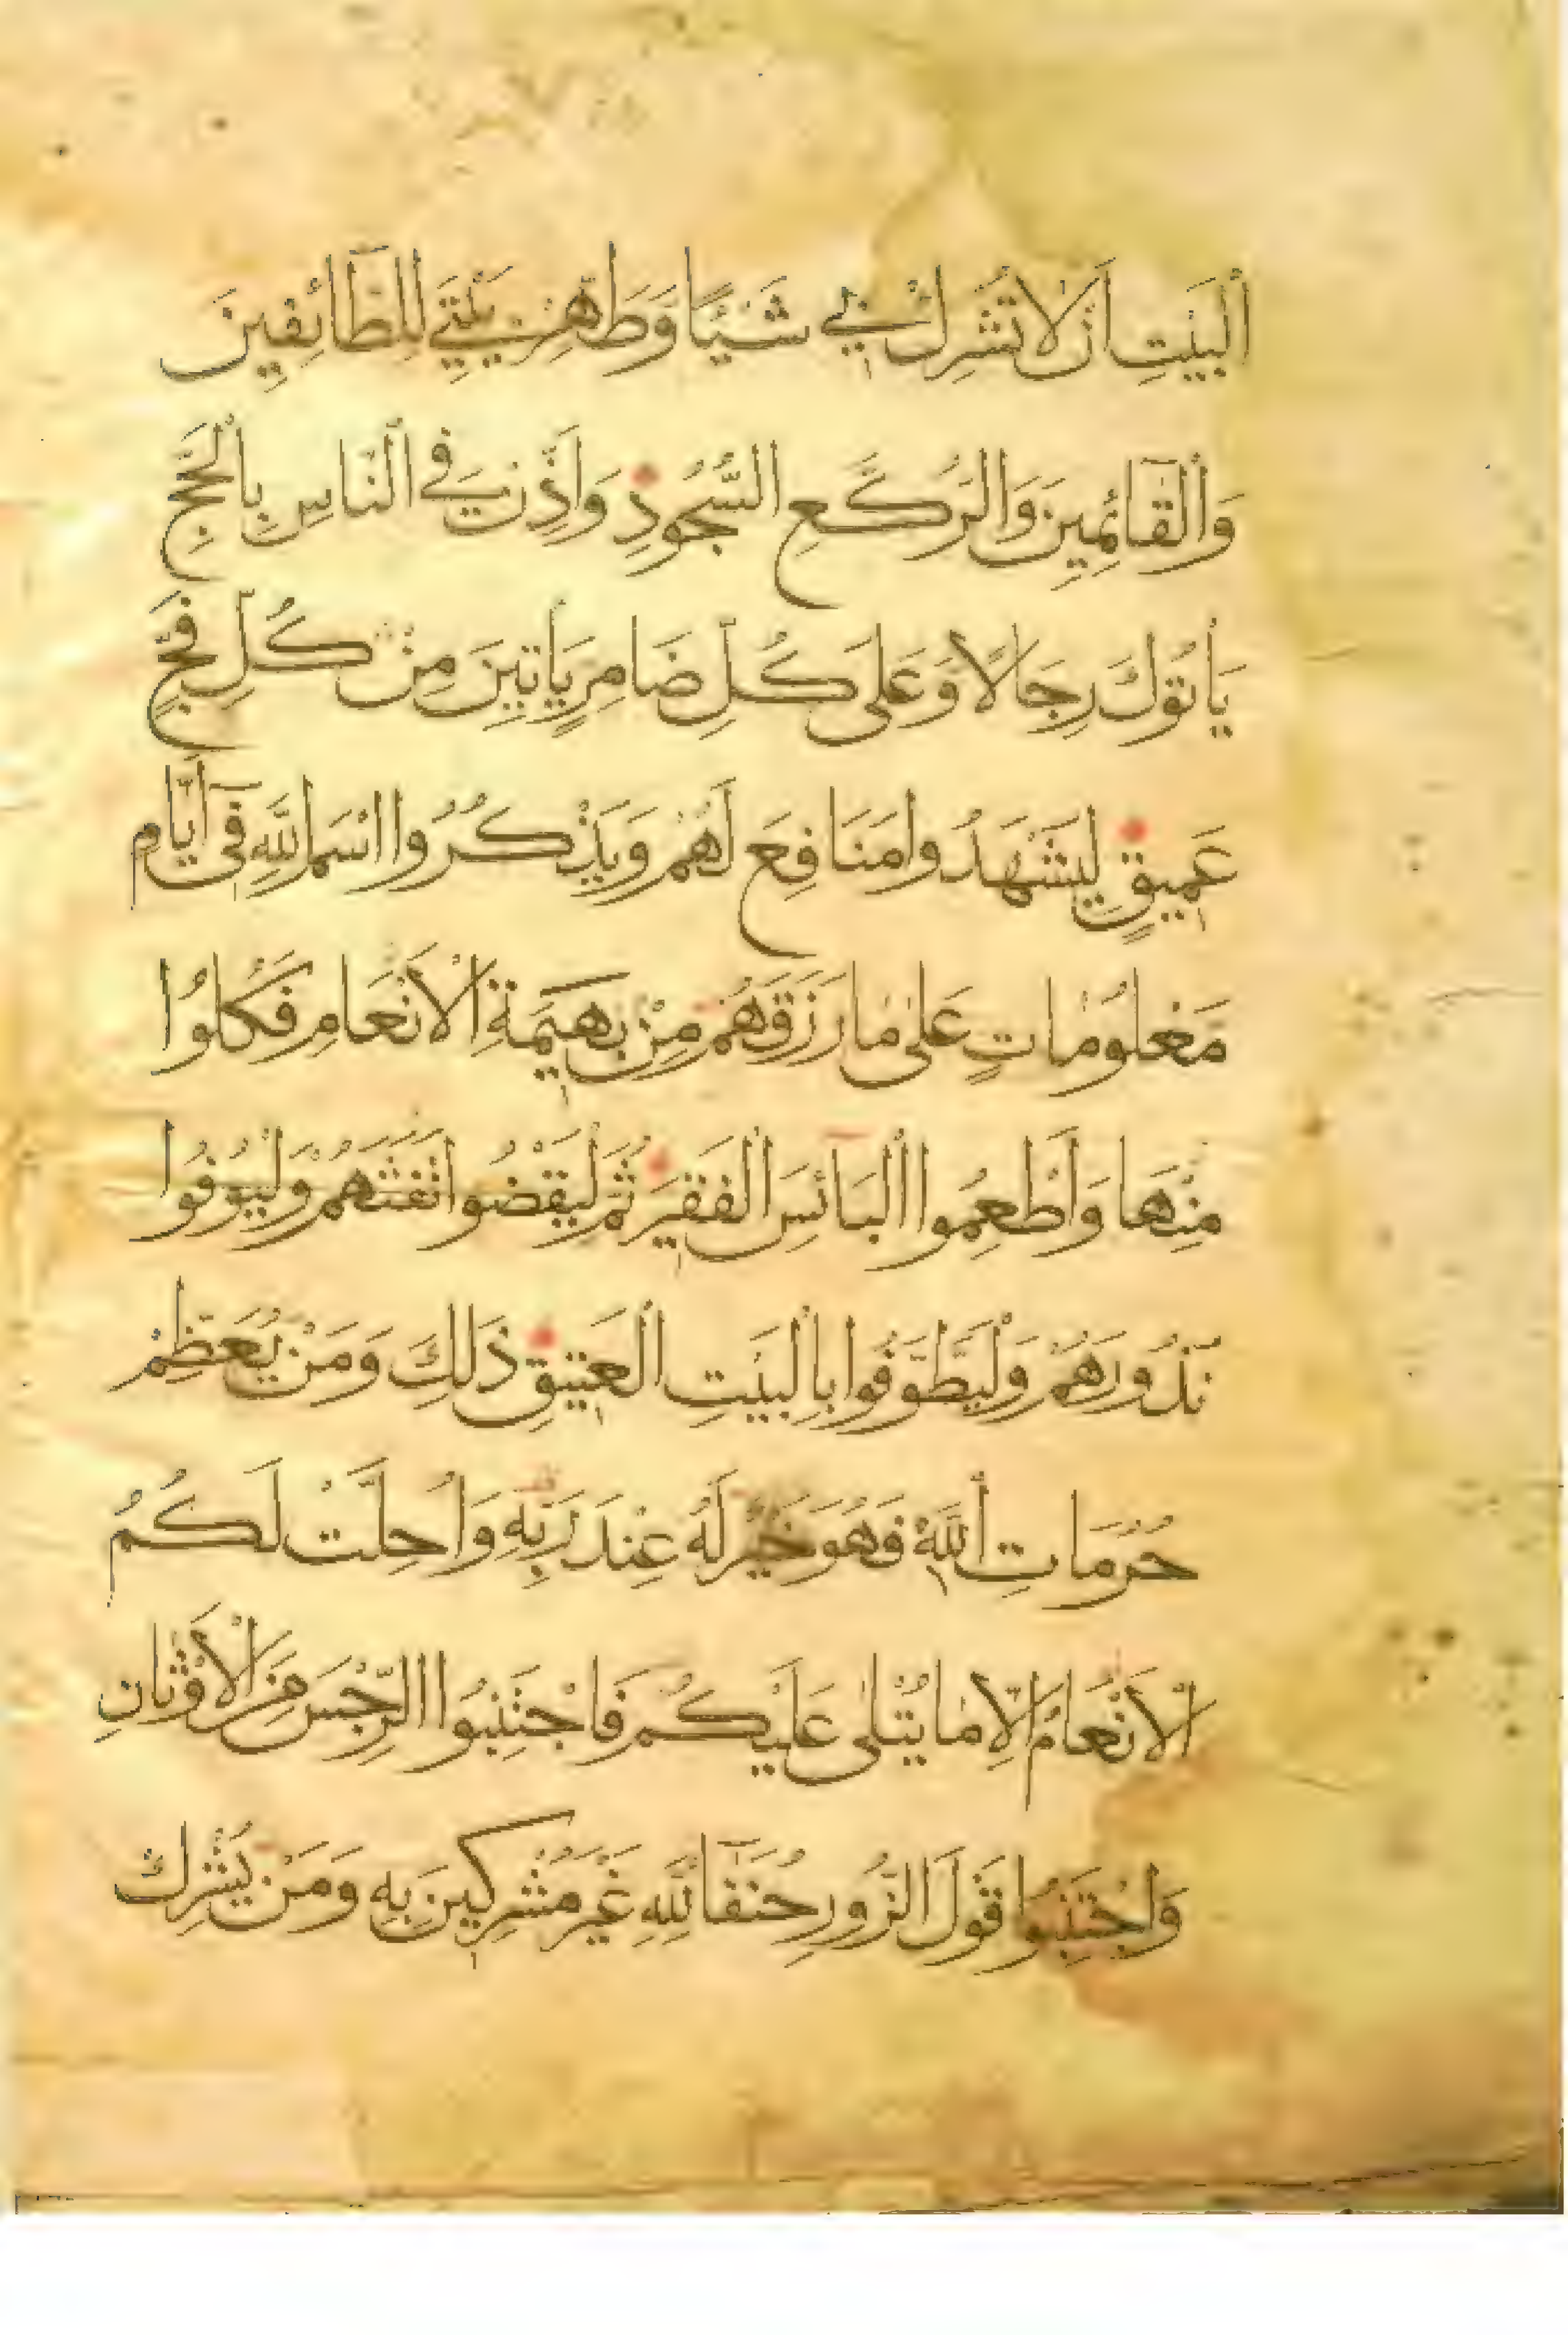 ٱلْبَيْتِ أَنْ لَا تُشْرِكْ بِي شَيْئًا وَطَهِّرْ بَيْتِيَ لِلطَّآئِفِينَ
وَٱلْقَآئِمِينَ وَالرُّكَّعِ السُّجُودِ وَأَذِّنْ فِي ٱلنَّاسِ بِٱلْحَجِّ
يَأْتُوكَ رِجَالًا وَعَلَى كُلِّ ضَامِرٍ يَأْتِينَ مِنْ كُلِّ فَجٍّ
عَمِيقٍ لِيَشْهَدُوا مَنَافِعَ لَهُمْ وَيَذْكُرُوا اسْمَ اللَّهِ فِىٓ أَيَّامٍ
مَعْلُومَاتٍ عَلَىٰ مَا رَزَقَهُمْ مِنْ بَهِيمَةِ ٱلْأَنْعَامِ فَكُلُوا
مِنْهَا وَأَطْعِمُوا ٱلْبَآئِسَ ٱلْفَقِيرَ ثُمَّ لْيَقْضُوا تَفَثَهُمْ وَلْيُوفُوا
نُذُورَهُمْ وَلْيَطَّوَّفُوا بِٱلْبَيْتِ ٱلْعَتِيقِ ذَلِكَ وَمَنْ يُعَظِّمْ
حُرُمَاتِ ٱللَّهِ فَهُوَ خَيْرٌ لَهُ عِنْدَ رَبِّهِ وَأُحِلَّتْ لَكُمُ
ٱلْأَنْعَامُ إِلَّا مَا يُتْلَىٰ عَلَيْكُمْ فَاجْتَنِبُوا الرِّجْسَ مِنَ ٱلْأَوْثَانِ
وَاجْتَنِبُوا قَوْلَ الزُّورِ حُنَفَآءَ لِلَّهِ غَيْرَ مُشْرِكِينَ بِهِ وَمَنْ يُشْرِكْ